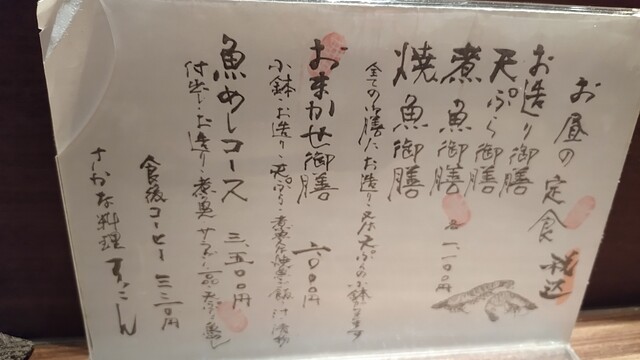 お昼の定食 税込
お造り御膳
天ぷら御膳
煮魚御膳 各一、一〇〇円
焼魚御膳
全ての御膳にお造り又は天ぷらの小鉢
おまかせ御膳 二、〇〇〇円
小鉢・お造り・天ぷら・煮魚又は焼魚・ご飯・汁・漬物
魚めしコース 三、五〇〇円
付出し・お造り・煮魚 サラダ・一品 天ぷら・魚めし
食後コーヒー 三三〇円
さかな料理